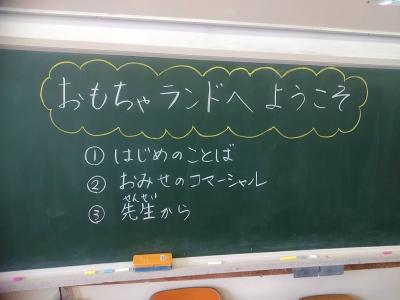 おもちゃランドへ ようこそ
① はじめのことば
② おみせのコマーシャル
せんせい
③ 先生から